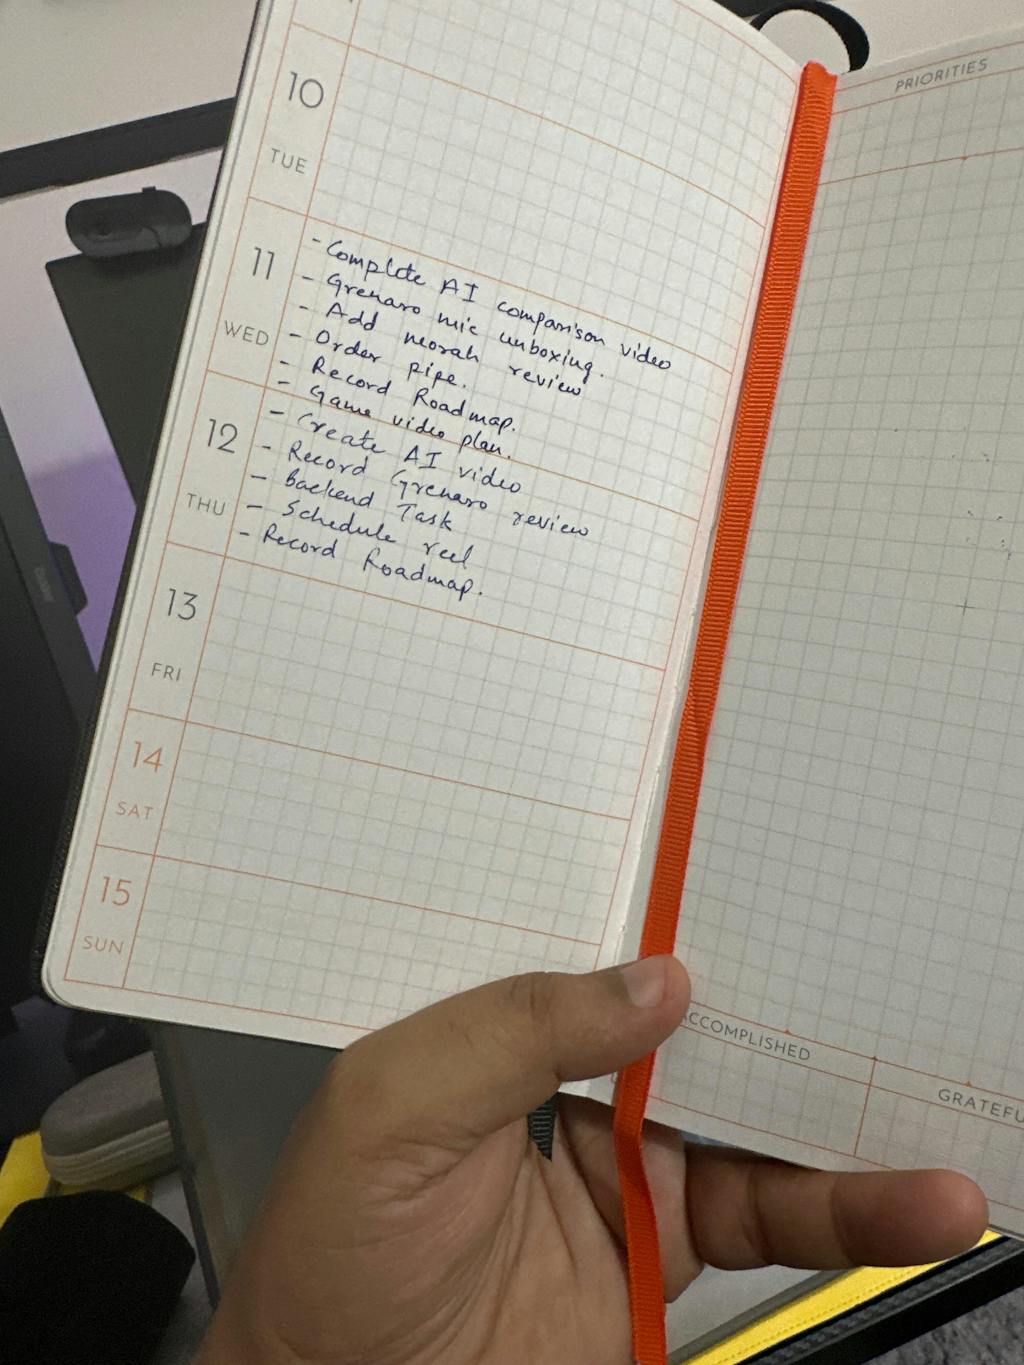 PRIORITIES
10
TUE
11
WED
- Complete AI comparison video
- Grenaro mic unboxing.
- Add neorah review
- Order pipe.
- Record Roadmap.
- Game video plan.
12
THU
- Create AI video
- Record Grenaro review
- Backend Task
- Schedule reel
- Record Roadmap.
13
FRI
14
SAT
15
SUN
ACCOMPLISHED
GRATEFU